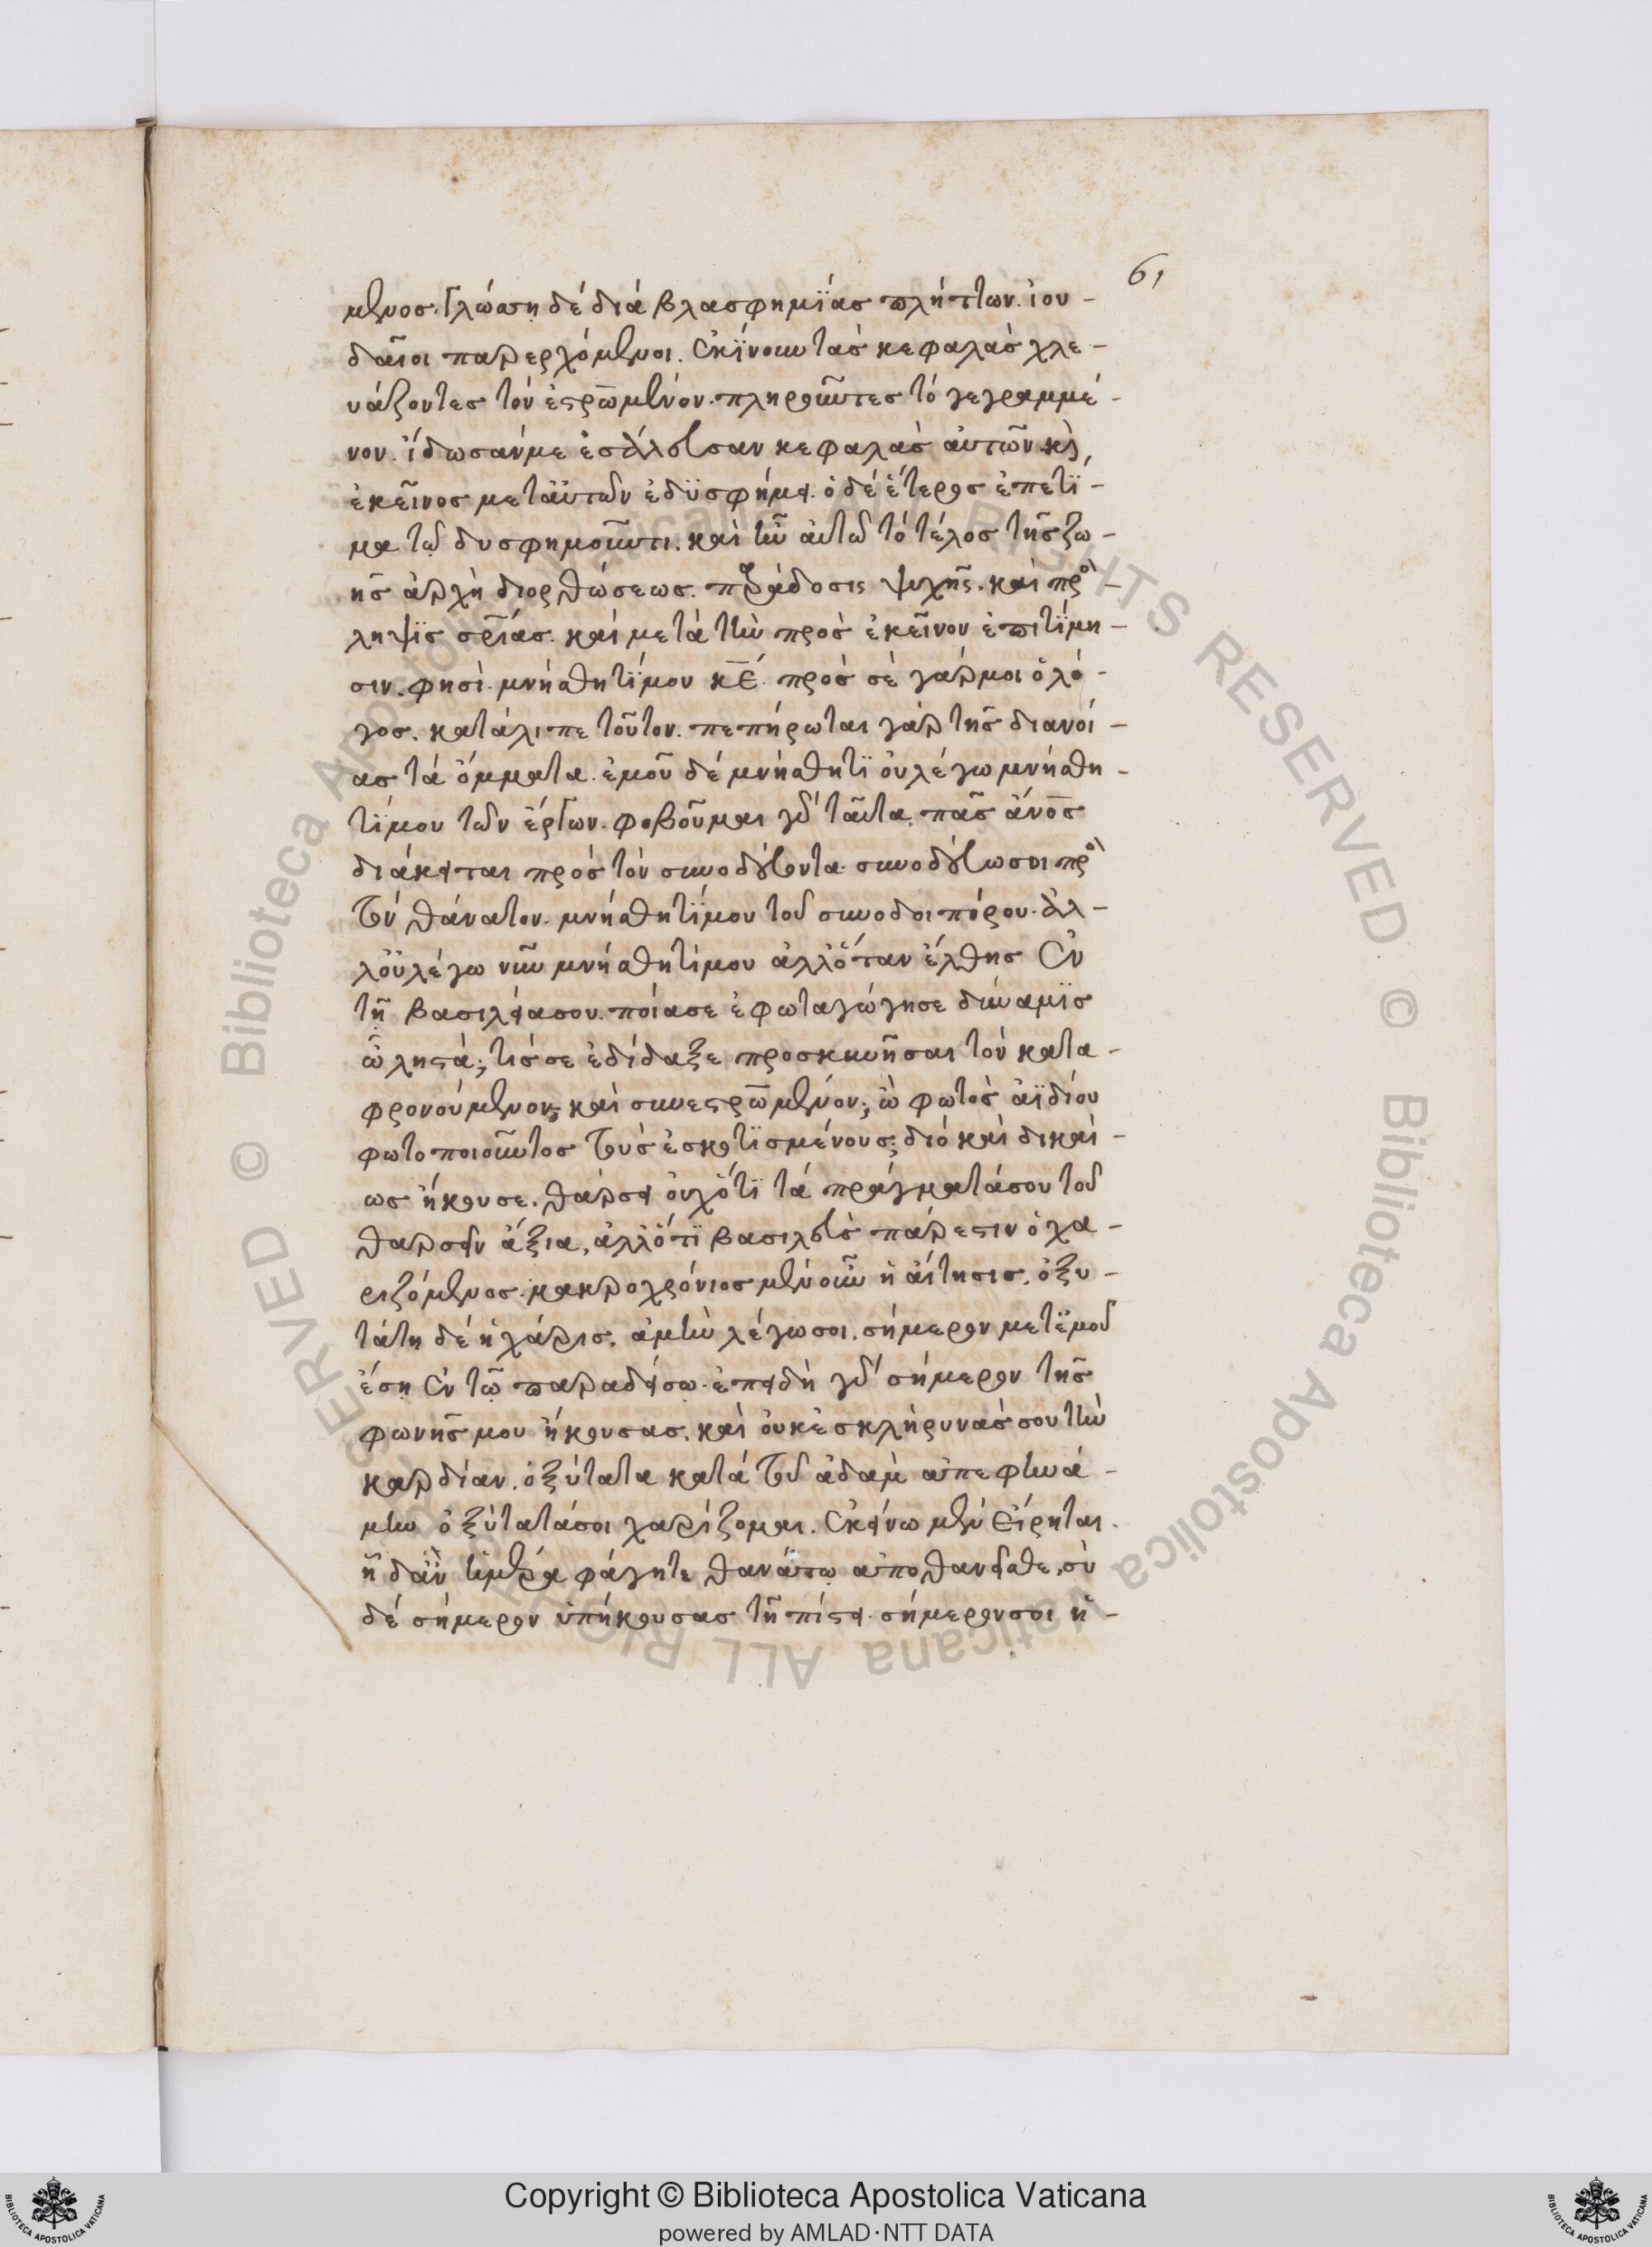 61
μενος. Γλώσση δέ διά βλασφημΐας πλήττων. ἰου-
δαῖοι παρερχόμενοι. ἐκΐνουν τὰς κεφαλὰς χλε-
υάζοντες τὸν ἐσρ̅ωμένον. πληροῦντες τὸ γεγραμμέ-
νον. ἴδωσάν με ἐσάλευσαν κεφαλὰς αὐτῶν κὶ
ἐκεῖνος μετ' αὐτῶν ἐδϋσφήμει. ὁ δέ ἕτερος ἐπετΐ-
μα τῷ δυσφημοῦντι. καὶ ἦν αὐτῶ τὸ τέλος τῆς ζω-
ης ἀρχὴ διορθώσεως. παράδοσις ψυχῆς. καὶ πρὸ-
ληψϊς σρ̅ίας. καὶ μετὰ τὴν πρὸς ἐκεῖνον ἐπιτΐμη-
σιν. φησὶ. μνήσθητΐ μου κ̅ε̅. πρὸς σὲ γάρ μοι ὁ λό-
γος. κατάλιπε τοῦτον. πεπήρωται γάρ τῆς διανοί-
ας τά ὄμματα. ἐμοῦ δέ μνήσθητϊ οὐ λέγω μνήσθη-
τΐ μου τῶν ἔργων. φοβοῦμαι γὰρ ταῦτα. πᾶς ἄνο̅ς
διάκειται πρὸς τὸν συνοδεύοντα. συνοδεύω σοι πρὸς
τὸν θάνατον. μνήσθητΐ μου τοῦ συνοδοιπόρου. ἀλ-
λ' οὐ λέγω νῦν μνήσθητί μου ἀλλ' ὅταν ἔλθης ἐν
τῆ βασιλεία σου. ποία σε ἐφωταγώγησε δύναμϊς
ὦ ληστά; τίς σε ἐδίδαξε προσκυνῆσαι τὸν κατα-
φρονούμενον; καὶ συνεσρ̅ωμένον; ὦ φωτὸς ἀϊδίου
φωτοποιοῦντος τοὺς ἐσκοτϊσμένους; διό καὶ δικαί-
ως ἤκουσε. θάρσει οὐχ ὅτϊ τά πράγματά σου τοῦ
θαρσεῖν ἄξια, ἀλλ' ὅτϊ βασιλεὺς πάρεστιν ὁ χα-
ριζόμενος. μακροχρόνιος μὲν οὖν ἡ αἴτησις. ὀξυ-
τάτη δέ ἡ χάρις. ἀμὴν λέγω σοι. σήμερον μετ' ἐμοῦ
ἔση ἐν τῶ παραδείσω. ἐπειδὴ γὰρ σήμερον τῆς
φωνῆς μου ἤκουσας. καὶ οὐκ ἐσκλήρυνάς σου τὴν
καρδίαν. ὀξύτατα κατά τοῦ ἀδαμ ἀπεφηνά-
μην ὀξύτατά σοι χαρίζομαι. ἐκείνω μὲν εἴρηται.
ἧ δ' ἂν ἡμέρα φάγητε θανάτω ἀποθανεῖσθε, σὺ
δέ σήμερον ὑπήκουσας τῆ πίστει. σήμερόν σοι ἡ-